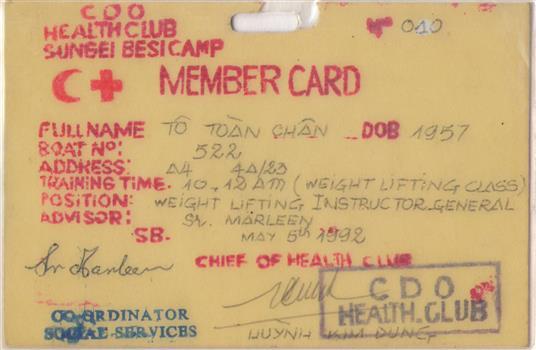 CDO
HEALTH CLUB
SUNGEI BESI CAMP
Nº 010
MEMBER CARD
FULL NAME TÔ TOÀN CHÂN DOB 1957
BOAT Nº: 522
ADDRESS: A4 4A/23
TRAINING TIME. 10.12 AM (WEIGHT LIFTING CLASS)
POSITION: WEIGHT LIFTING INSTRUCTOR GENERAL
ADVISOR: Sr. MARLEEN
SB. MAY 5th 1992
Sr Marleen
CHIEF OF HEALTH CLUB
CDO
HEALTH.CLUB
CO-ORDINATOR
SOCIAL SERVICES
HUỲNH KIM DUNG